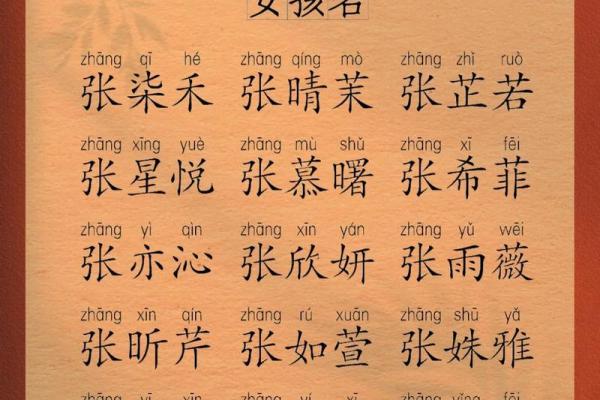 女孩名
zhāng qī hé zhāng qíng mò zhāng zhǐ ruò
张柒禾 张晴茉 张芷若
zhāng xīng yuè zhāng mù shǔ zhāng xī fēi
张星悦 张慕曙 张希菲
zhāng yì qìn zhāng xīn yán zhāng yǔ wēi
张亦沁 张欣妍 张雨薇
zhāng xīn qín zhāng rú xuān zhāng shū yǎ
张昕芹 张如萱 张姝雅